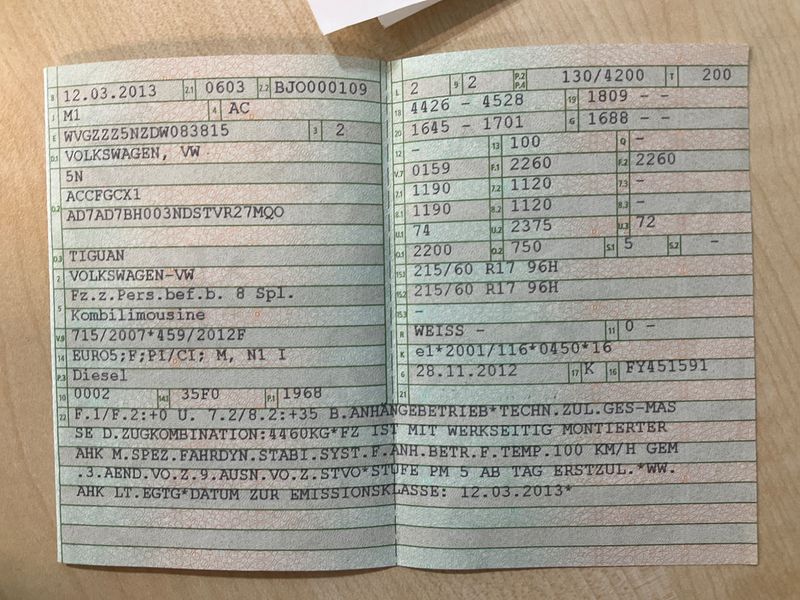 B 12.03.2013 2.1 0603 2.2 BJO000109
J M1 4 AC
E WVGZZZ5NZDW083815 3 2
D.1 VOLKSWAGEN, VW
5N
D.2 ACCFGCX1
AD7AD7BH003NDSTVR27MQO
D.3 TIGUAN
2 VOLKSWAGEN-VW
5 Fz.z.Pers.bef.b. 8 Spl.
Kombilimousine
V.9 715/2007*459/2012F
14 EURO5;F;PI/CI; M, N1 I
P.3 Diesel
10 0002 14.1 35F0 P.1 1968
L 2 9 2 P.2 P.4 130/4200 T 200
18 4426 - 4528 19 1809 - -
20 1645 - 1701 G 1688 - -
12 - 13 100 Q -
V.7 0159 F.1 2260 F.2 2260
7.1 1190 7.2 1120 7.3 -
8.1 1190 8.2 1120 8.3 -
U.1 74 U.2 2375 U.3 72
O.1 2200 O.2 750 S.1 5 S.2 -
15.1 215/60 R17 96H
15.2 215/60 R17 96H
15.3 -
R WEISS - 11 0 -
K e1*2001/116*0450*16
6 28.11.2012 17 K 16 FY451591
21
22 F.1/F.2:+0 U. 7.2/8.2:+35 B.ANHÄNGEBETRIEB*TECHN.ZUL.GES-MAS
SE D.ZUGKOMBINATION:4460KG*FZ IST MIT WERKSEITIG MONTIERTER
AHK M.SPEZ.FAHRDYN.STABI.SYST.F.ANH.BETR.F.TEMP.100 KM/H GEM
.3.AEND.VO.Z.9.AUSN.VO.Z.STVO*STUFE PM 5 AB TAG ERSTZUL.*WW.
AHK LT.EGTG*DATUM ZUR EMISSIONSKLASSE: 12.03.2013*